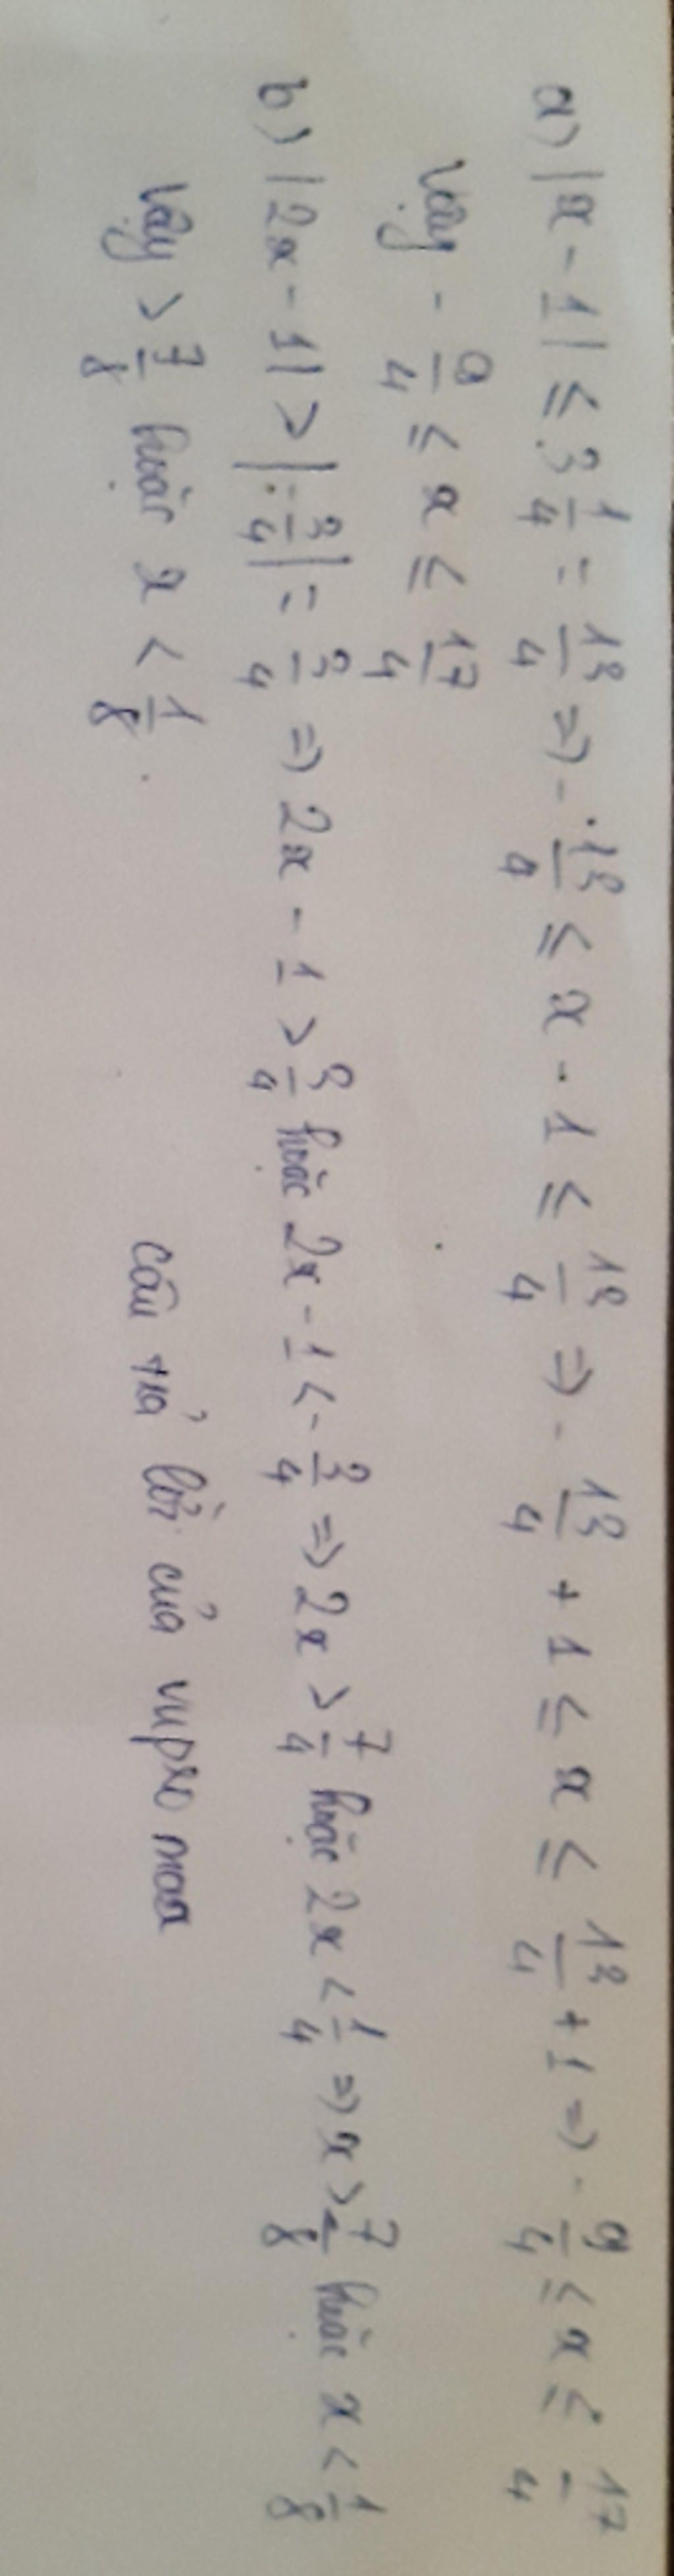 a) |x - 1| ≤ 3 1/4 = 13/4 => - 13/4 ≤ x - 1 ≤ 13/4 => - 13/4 + 1 ≤ x ≤ 13/4 + 1 => - 9/4 ≤ x ≤ 17/4
Vậy - 9/4 ≤ x ≤ 17/4
b) |2x - 1| > |- 3/4| = 3/4 => 2x - 1 > 3/4 hoặc 2x - 1 < - 3/4 => 2x > 7/4 hoặc 2x < 1/4 => x > 7/8 hoặc x < 1/8
Vậy > 7/8 hoặc x < 1/8.
câu trả lời của